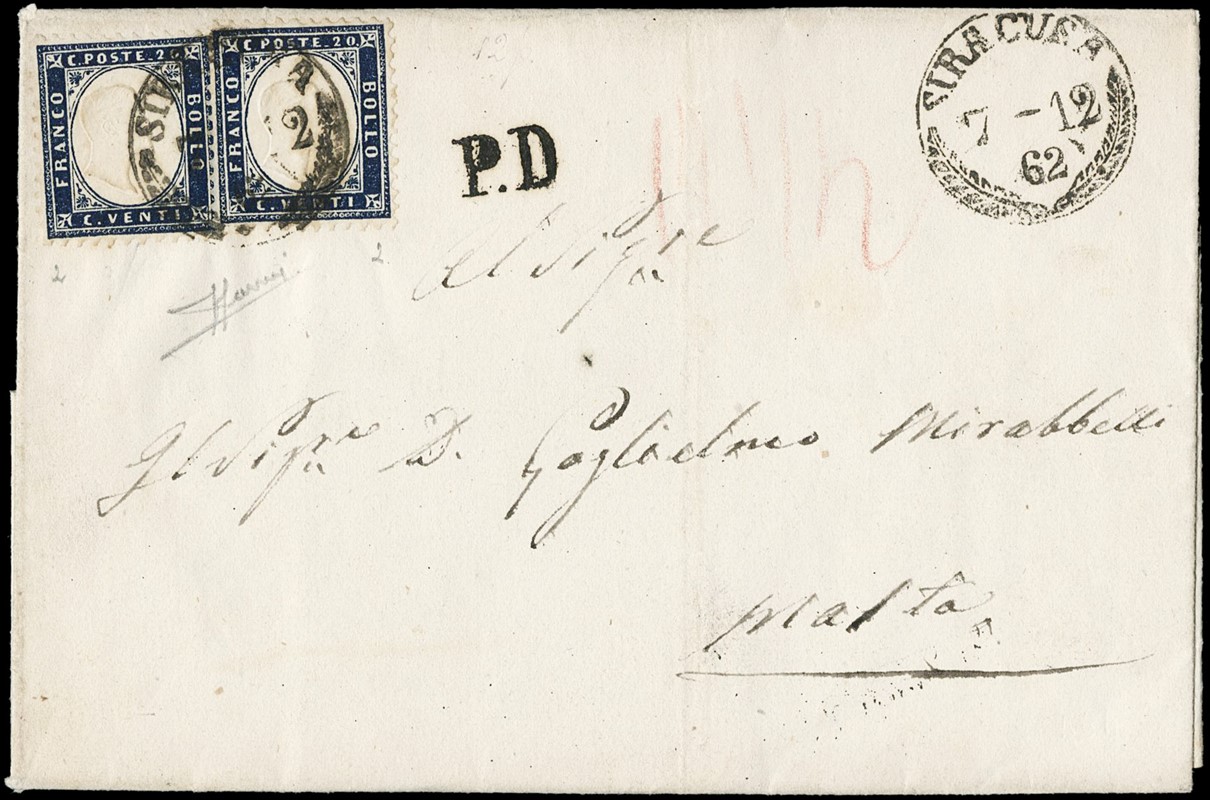 C. POSTE. 20
FRANCO
BOLLO
C. VENTI
C. POSTE. 20.
FRANCO
BOLLO
C. VENTI
P.D
SIRACUSA
7 - 12
62
Al Sigre
Il Sigre D. Goglielmo Mirabbelli
Malta